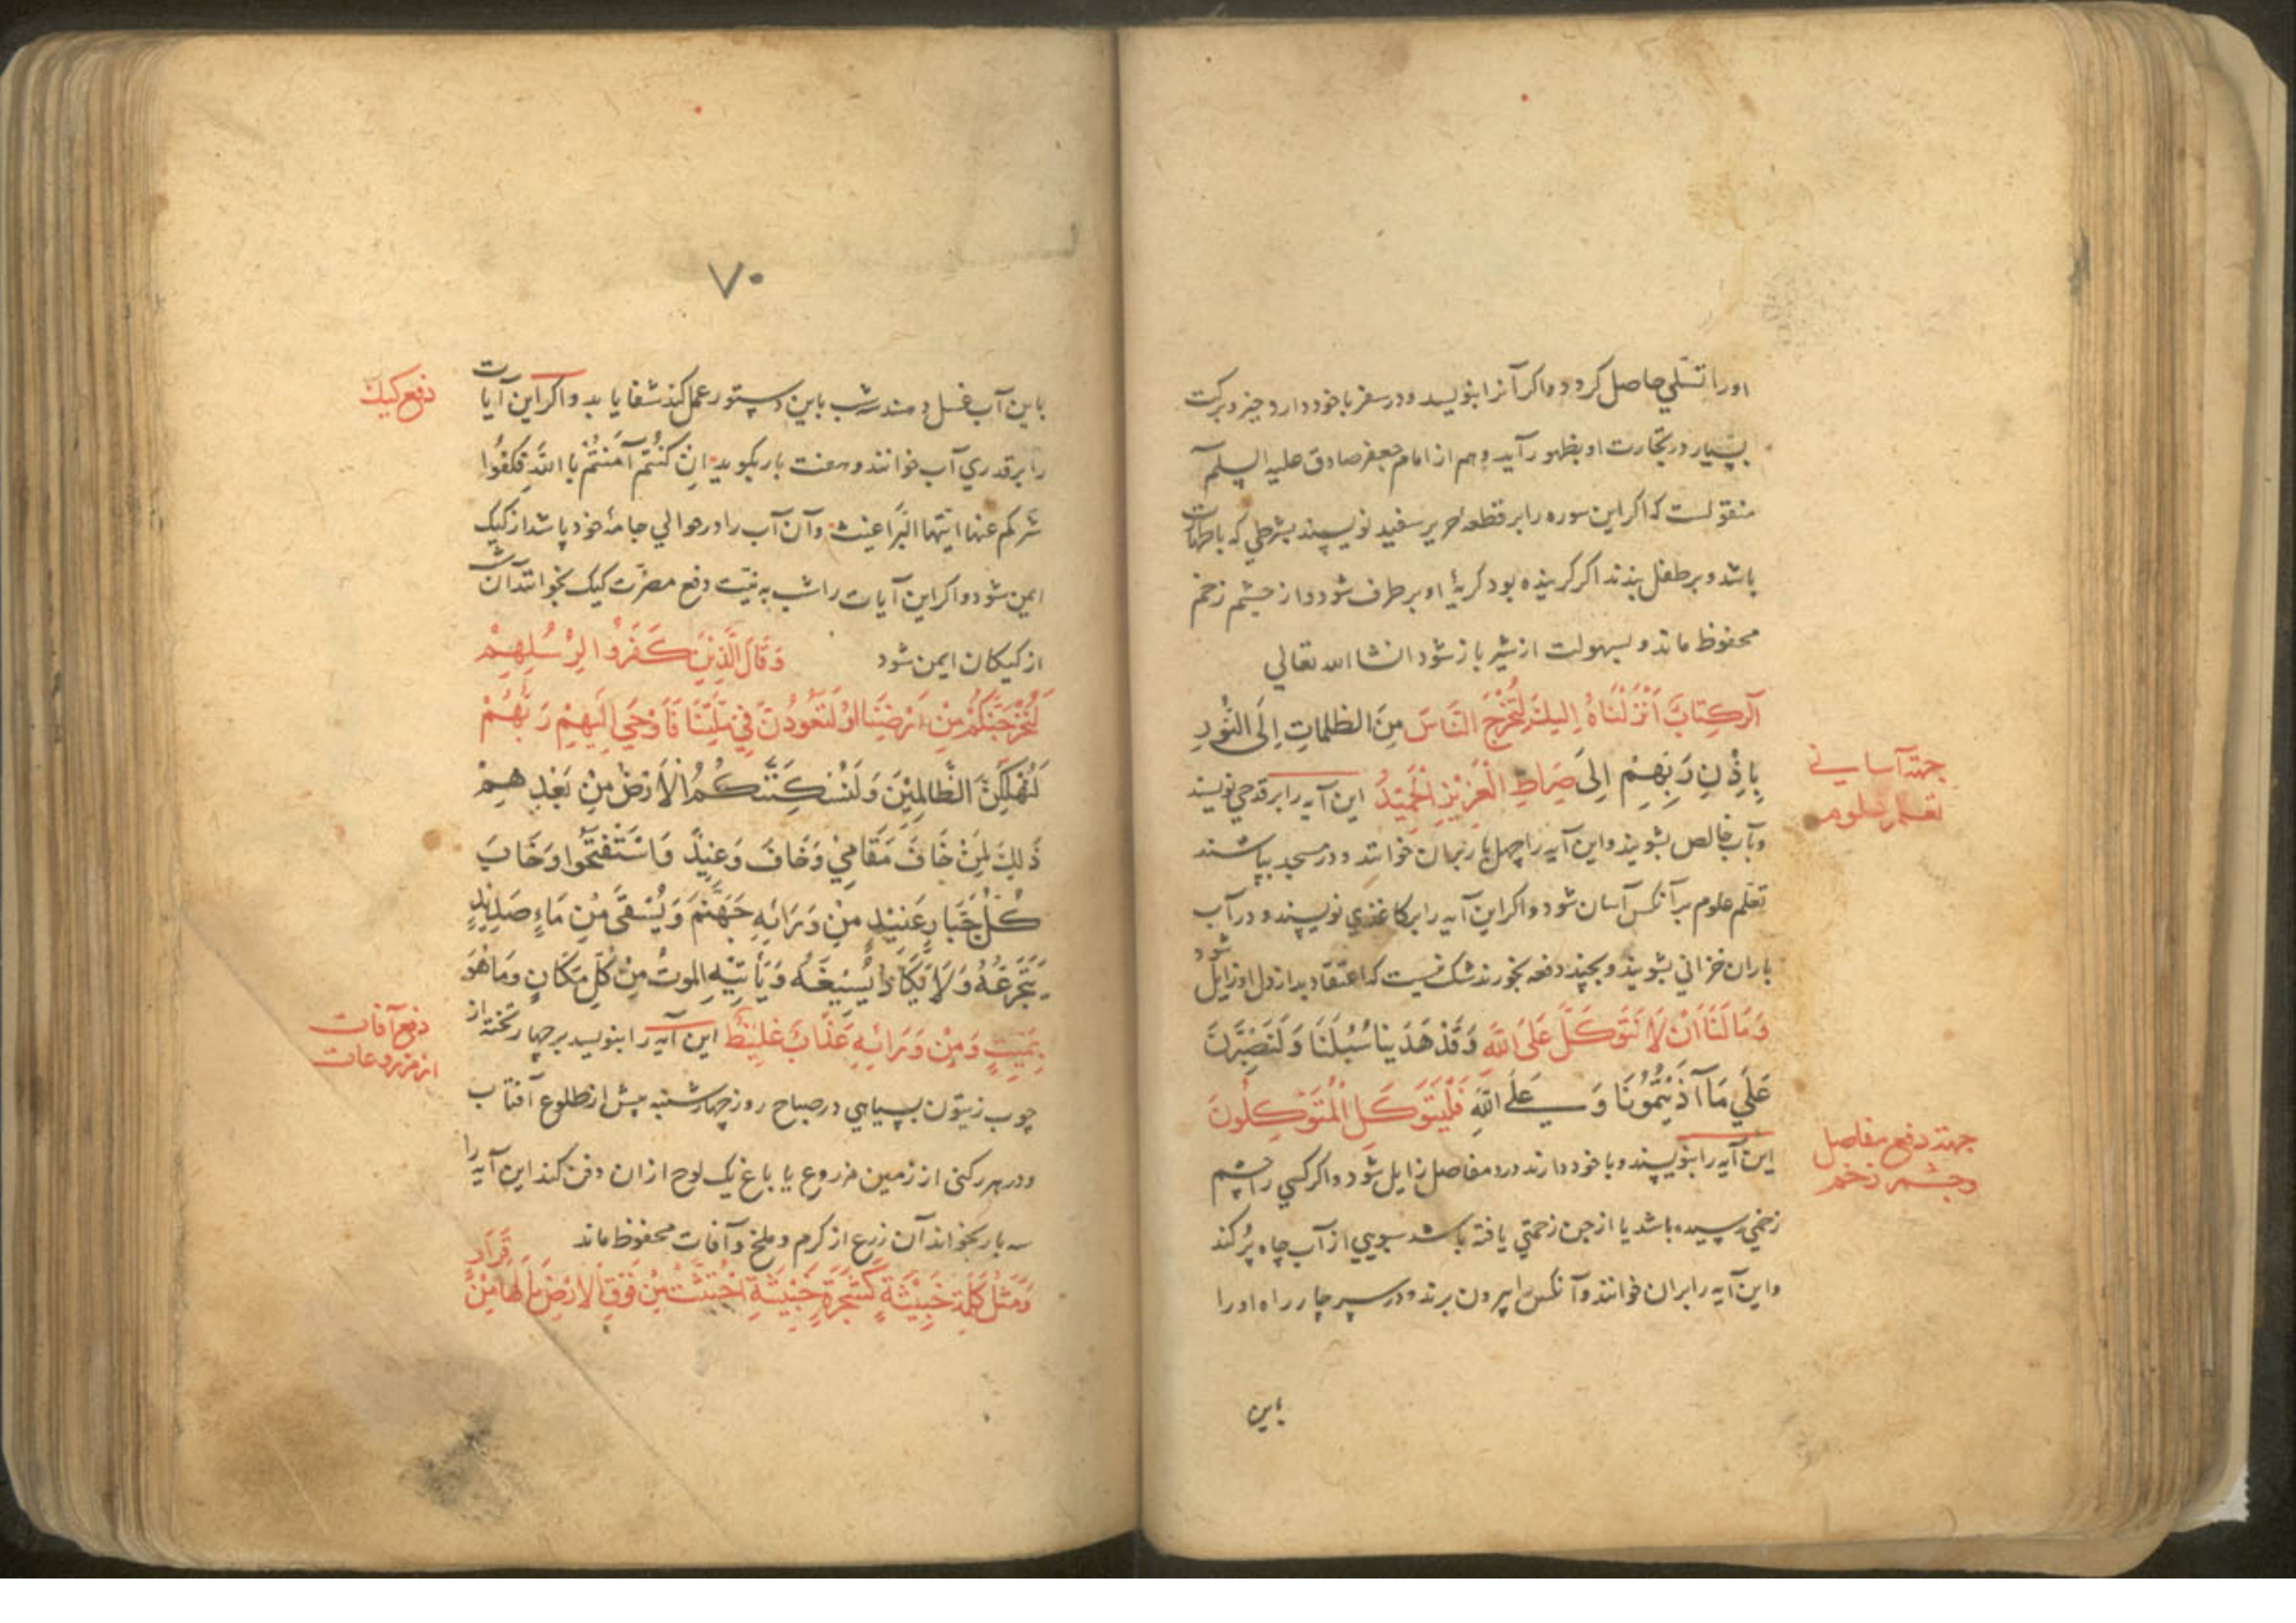 اورا تسلي حاصل کردد واکر آنرا بنویسد ودر سفر باخود دارد خیر وبرکت
بسیار در تجارت او بظهور آید وهم از امام جعفر صادق علیه السلم
منقولست که اکر این سوره را بر قطعه حریر سفید نویسند بشرطي که باطهات
باشد وبر طفل بندند اکر کرینده بود کریۀ او برطرف شود واز چشم زخم
محفوظ ماند وبسهولت از شیر باز شود انشا الله تعالي
الر کِتابٌ اَنْزَلْنَاهُ اِلیكَ لِتُخْرِجَ النّاسَ مِنَ الظلماتِ اِلَی النُّورِ
بِاِذْنِ رَبِهِمْ اِلیَ صِرَاطِ الْعَزِیْزِ الْحَمِیْدُ این آیه را بر قدحي نویسند
جهته آساني
تعلم علوم
وبآب خالص بشویند واین آیه را چهل بار بران خوانند ودر مسجد بپاشند
تعلم علوم بر آنکس آسان شود واکر این آیه را بر کاغذي نویسند ودر آب
باران خزاني بشویند وبچند دفعه بخورند شك نیست که اعتقاد بد از دل او زایل شود
وَمَا لَنَا اَنْ لَا نَتَوَکَّلَ عَلَی اللّهِ وَقَدْ هَدَینا سُبُلَنَا وَلَنَصْبِرَنَّ
عَلَي مَا آذَیْتُمُونَا وَ عَلَي اللّهِ فَلْیَتَوَکَّلِ الْمُتَوَکِلُونَ
جهته دفع مفاصل
وچشم زخم
این آیه را بنویسند وبا خود دارند درد مفاصل زایل شود واکر کسي را چشم
زخمي رسیده باشد یا از جن زحمتي یافته باشد سبویي از آب چاه پُر کند
واین آیه را بران خوانند وآنکس را بیرون برند ودر سر چار راه اورا
باین
۷۰
باین آب غسل دهند سه شب باین دستور عمل کند شفا یابد واکر این آیات
دفع کیك
را بر قدري آب خوانند وهفت بار بکوید اِنْ کُنْتُم آمَنْتُمْ بِاللّهِ فکفوُا
شَرکم عنها ایتها البَراغیث وآن آب را در حوالي جامۀ خود پاشد از کیك
ایمن شود واکر این آیات را شب به نیّت دفع مضرّت کیك بخوانند آن شب
از کیکان ایمن شود وَقَالَ الَّذِیْنَ کَفَرُوا لِرُسُلِهِمْ
لَنُخْرِجَنَّکُمْ مِنْ اَرْضِنَا اَوْ لَتَعُودُنَّ فِي مِلَّتِنَا فَاَوْحَي اِلَیهِمْ رَبُّهُمْ
لَنُهْلِکَنَّ الظَّالِمِیْنَ وَلَنُسْکِنَنَّکُمُ الْاَرْضَ مِنْ بَعْدِهِمْ
ذَلِكَ لِمَنْ خَافَ مَقَامِي وَخَافَ وَعِیْدِ وَاسْتَفْتَحُوا وَخَابَ
کُلُّ جَبّارٍ عَنِیْدٍ مِنْ وَرَائِهِ جَهَنَّمُ وَیُسْقَی مِنْ مَاءٍ صَدِیْدٍ
یَتَجَرَّعُهُ وَلَا یَکَادُ یُسِیْغُهُ وَیَأتِیْهِ الموتُ مِنْ کُلِّ مَکَانٍ وَمَا هُوَ
بِمَیِّتٍ وَمِنْ وَرَائِهِ عَذَابٌ غَلِیْظٌ این آیه را بنویسد بر چهار تخته از
دفع آفات
از مزروعات
چوب زیتون بسیاهي در صباح روز چهارشنبه پیش از طلوع آفتاب
ودر هر رکنی از زمین مزروع یا باغ یك لوح از ان دفن کند این آیه را
سه بار بخواند آن زرع از کرم وملخ وآفات محفوظ ماند
وَمَثَلُ کَلِمَةٍ خَبِیْثَةٍ کَشَجَرَةٍ خَبِیْثَةٍ اجْتُثَّتْ مِنْ فَوْقِ الْاَرْضِ مَا لَهَا مِنْ قَرَارٍ